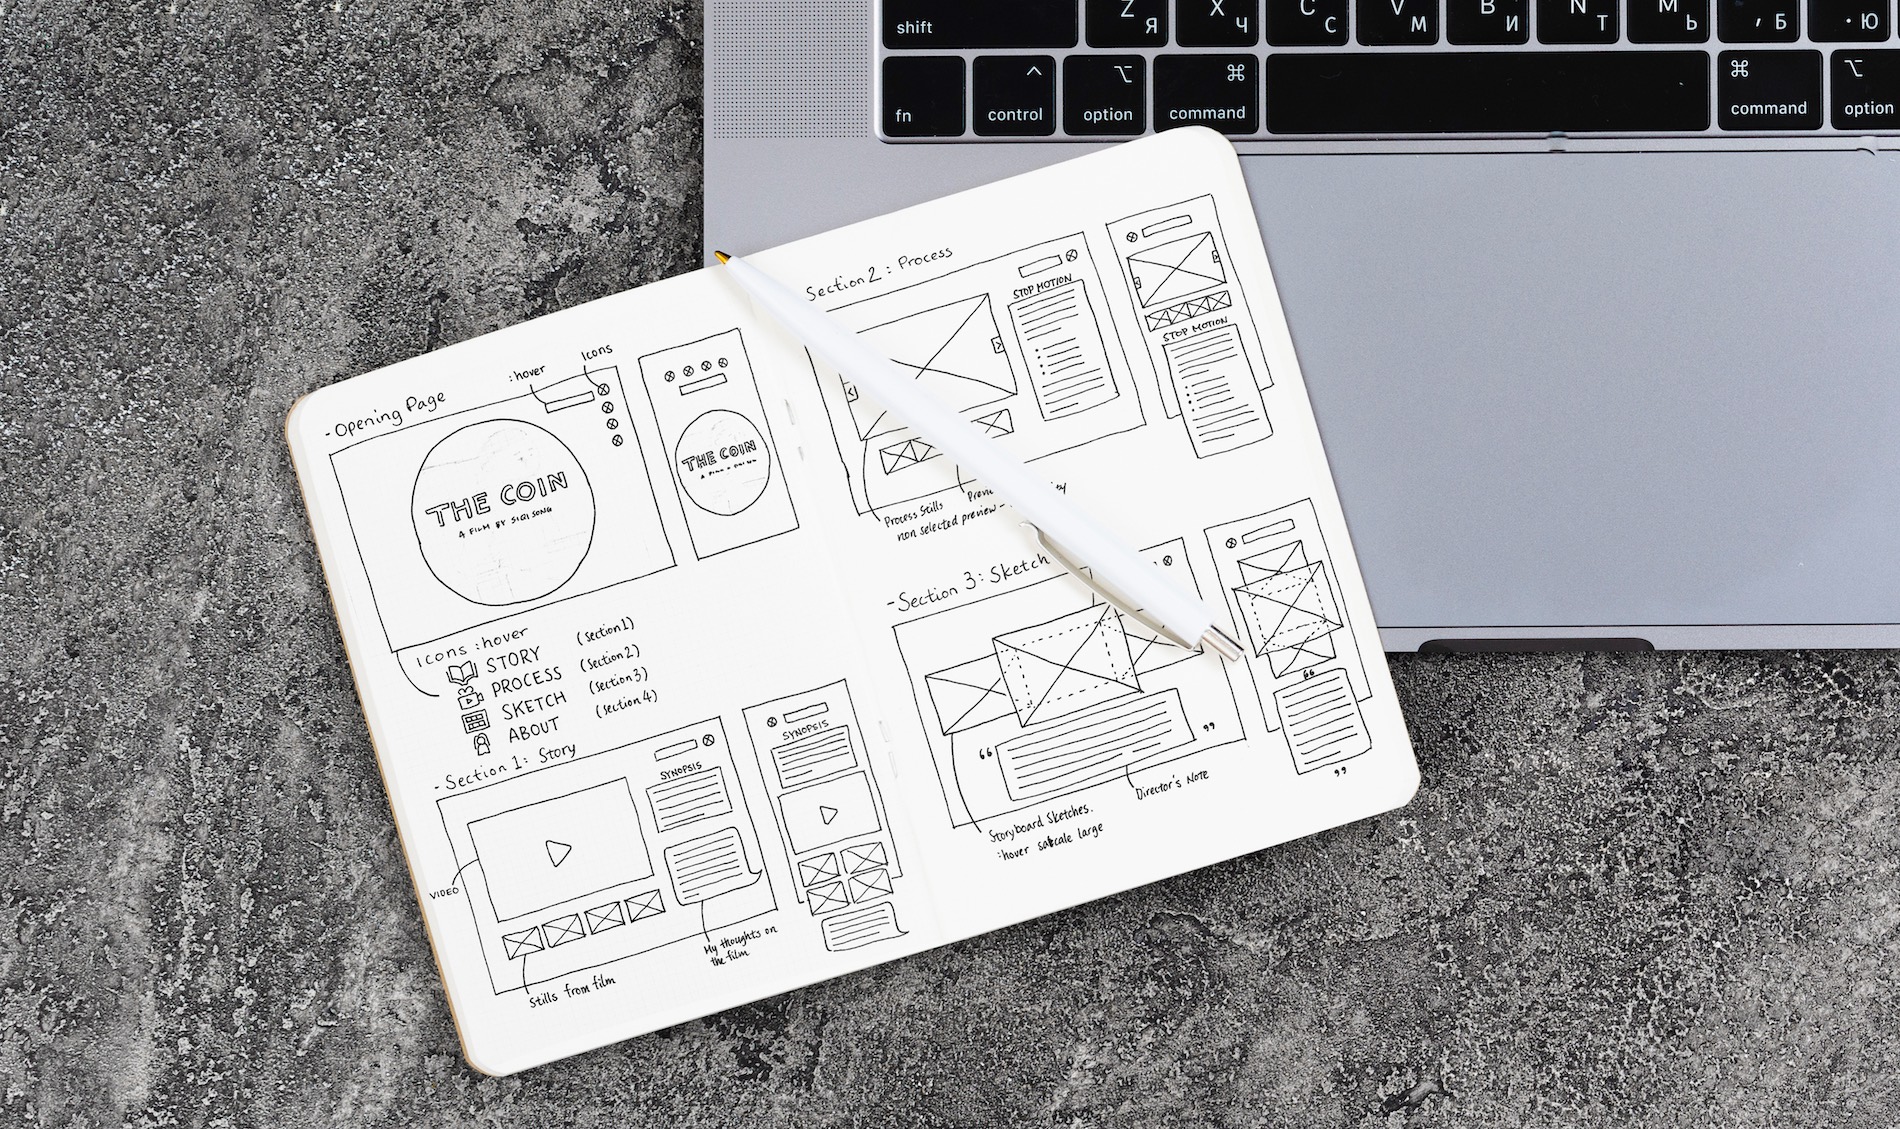 shift
Z Я
X Ч
C С
V М
B И
N Т
M Ь
, Б
. Ю
fn
control
option
command
command
option
- Opening Page
:hover
Icons
THE COIN
A FILM BY SIQI SONG
THE COIN
Icons :hover
STORY (section 1)
PROCESS (section 2)
SKETCH (section 3)
ABOUT (section 4)
- Section 1: Story
SYNOPSIS
SYNOPSIS
VIDEO
My thoughts on
the film
Stills from film
Section 2: Process
STOP MOTION
STOP MOTION
Process Stills
non selected preview -
- Section 3: Sketch
“
”
“
”
Director's Note
Storyboard Sketches.
:hover scale large